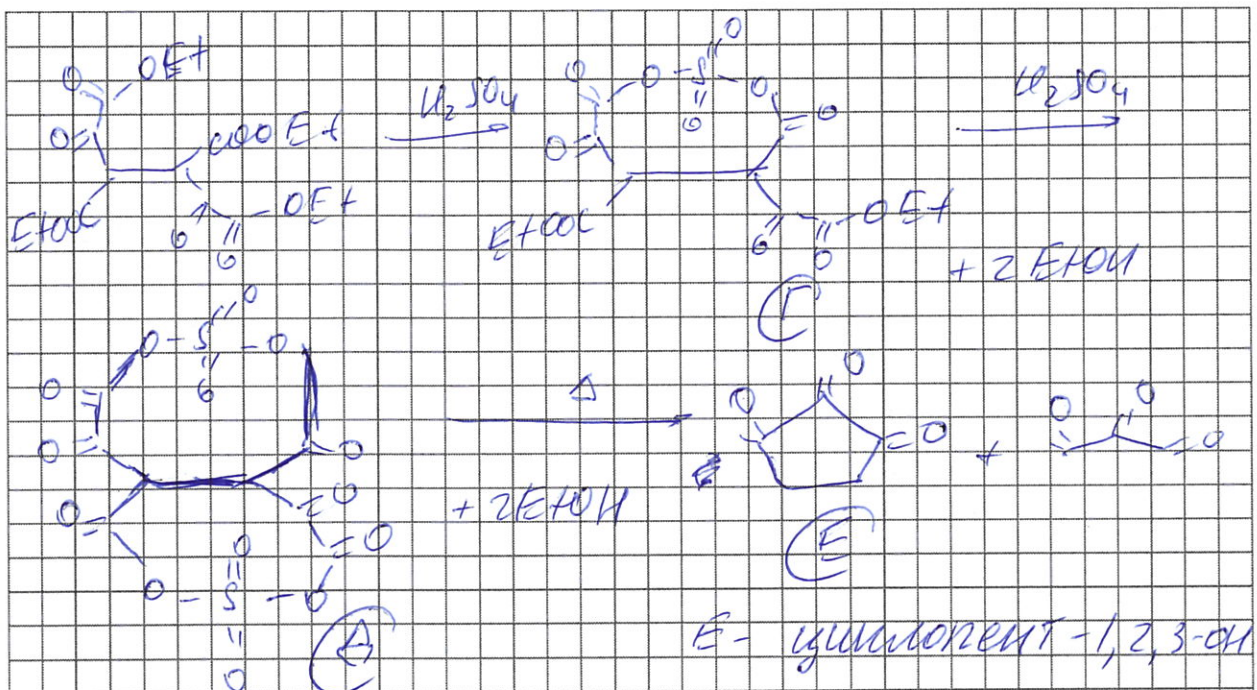 O OEt
O COOEt
EtOOC O OEt
O
H₂SO₄
O O-S=O O
O O =O
EtOOC O OEt
O
+ 2EtOH
Г
H₂SO₄
O-S=O -O
O O
O O
O O
O =O
O-S-O
O
Д
Δ
+ 2EtOH
O O =O
+ O O =O
Е
Е- циклопент-1,2,3-он